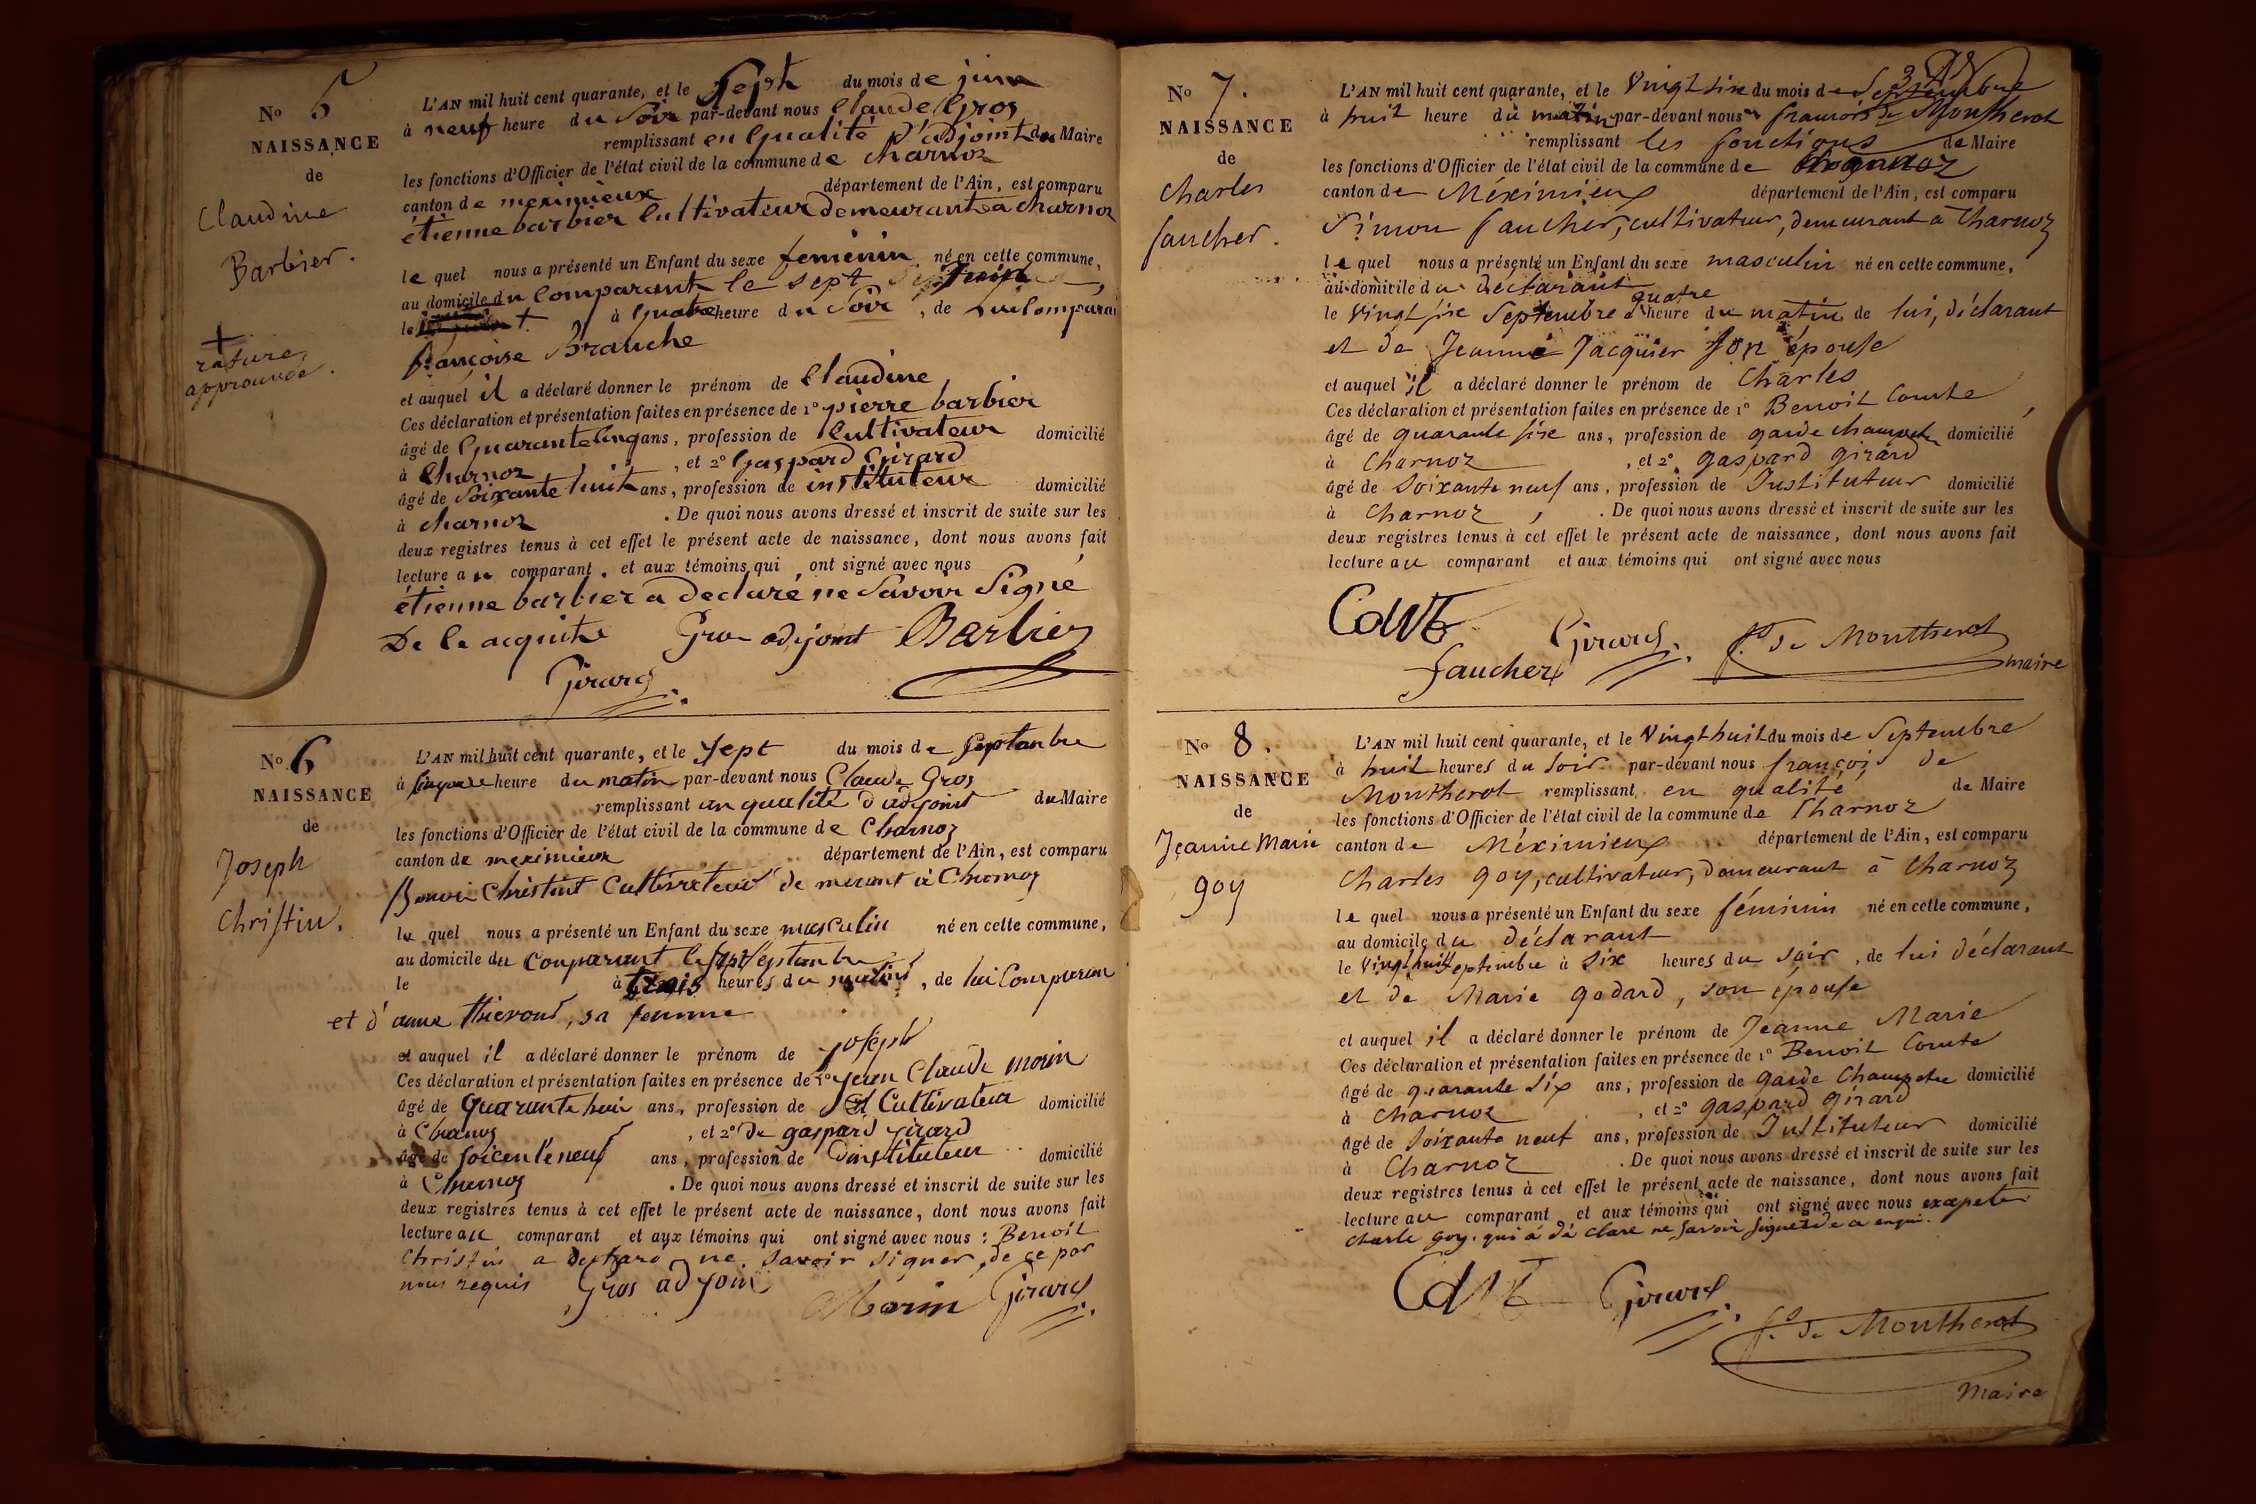 No 5
NAISSANCE
de
Claudine
Barbier.
+
rature
approuvée.
L'AN mil huit cent quarante, et le Sept du mois de juin
à neuf heure du Soir par-devant nous Claude Gros
remplissant en qualité d'adjoint du Maire
les fonctions d'Officier de l'état civil de la commune de charnoz
canton de meximieux département de l'Ain, est comparu
étienne barbier Cultivateur demeurant a charnoz
le quel nous a présenté un Enfant du sexe feminin né en cette commune,
au domicile du Comparant le sept juin
le à quatre heure du Soir, de lui Comparant
françoise Branche
et auquel il a déclaré donner le prénom de Claudine
Ces déclaration et présentation faites en présence de 1° pierre barbier
âgé de Quarante Cinq ans, profession de Cultivateur domicilié
à Charnoz, et 2° Gaspard Girard
âgé de Soixante huit ans, profession de instituteur domicilié
à charnoz. De quoi nous avons dressé et inscrit de suite sur les
deux registres tenus à cet effet le présent acte de naissance, dont nous avons fait
lecture au comparant. et aux témoins qui ont signé avec nous
étienne barbier a declaré ne Savoir Signé
De le acquite Gros adjoint Barbier
Girard
No 6
NAISSANCE
de
Joseph
Christin.
L'AN mil huit cent quarante, et le Sept du mois de Septanbre
à heure du matin par-devant nous Claude Gros
remplissant an qualité d'adjoint du Maire
les fonctions d'Officier de l'état civil de la commune de Charnoz
canton de meximieux département de l'Ain, est comparu
Benoi Christint Cultivateur de merant à Charnoz
le quel nous a présenté un Enfant du sexe masculin né en cette commune,
au domicile du Conparant le sept Septanbre
le à trois heures du matin, de lui Comparant
et d'anne thievont, sa femme
et auquel il a déclaré donner le prénom de joseph
Ces déclaration et présentation faites en présence de 1° jean Claude morin
âgé de Quarante huit ans, profession de Cultivateur domicilié
à Charnoz, et 2° de gaspard girard
âgé de soicente neuf ans, profession de d'instituteur domicilié
à Charnoz. De quoi nous avons dressé et inscrit de suite sur les
deux registres tenus à cet effet le présent acte de naissance, dont nous avons fait
lecture au comparant et aux témoins qui ont signé avec nous: Benoit
Christin a declaré ne savoir signer, de ce par
nous requis Gros adjoint Morin Girard
No 7.
NAISSANCE
de
Charles
faucher.
L'AN mil huit cent quarante, et le Vingt sixe du mois de Septembre
à huit heure du matin par-devant nous françois de Montherot
remplissant les fonctions de Maire
les fonctions d'Officier de l'état civil de la commune de Charnoz
canton de Méximieux département de l'Ain, est comparu
Simon faucher, cultivateur, demeurant à Charnoz
le quel nous a présenté un Enfant du sexe masculin né en cette commune,
au domicile du déclarant
quatre
le Vingt sixe Septembre à heure du matin de lui, déclarant
et de Jeanne Jacquier son épouse
et auquel il a déclaré donner le prénom de Charles
Ces déclaration et présentation faites en présence de 1° Benoit Comte,
âgé de quarante sixe ans, profession de garde champetre domicilié
à Charnoz, et 2° gaspard girard
âgé de Soixante neuf ans, profession de Instituteur domicilié
à Charnoz,. De quoi nous avons dressé et inscrit de suite sur les
deux registres tenus à cet effet le présent acte de naissance, dont nous avons fait
lecture au comparant et aux témoins qui ont signé avec nous
Comte Girard f. de Montherot
faucher maire
No 8.
NAISSANCE
de
Jeanne Marie
goy
L'AN mil huit cent quarante, et le Vingt huit du mois de Septembre
à huit heures du Soir par-devant nous françois de
Montherot remplissant, en qualité de Maire
les fonctions d'Officier de l'état civil de la commune de Charnoz
canton de Méximieux département de l'Ain, est comparu
Charles goy, cultivateur, demeurant à Charnoz
le quel nous a présenté un Enfant du sexe féminin né en cette commune,
au domicile du déclarant
le Vingt huit Septembre à Six heures du soir, de lui déclarant
et de Marie godard, son épouse
et auquel il a déclaré donner le prénom de Jeanne Marie
Ces déclaration et présentation faites en présence de 1° Benoit Comte
âgé de quarante six ans, profession de garde Champetre domicilié
à Charnoz, et 2° gaspard girard
âgé de Soixante neuf ans, profession de Instituteur domicilié
à Charnoz. De quoi nous avons dressé et inscrit de suite sur les
deux registres tenus à cet effet le présent acte de naissance, dont nous avons fait
lecture au comparant et aux témoins qui ont signé avec nous exepeter
Charle goy. qui a dé clare ne savoir signer de ce enqui.
Comte Girard f. de Montherot
Maire